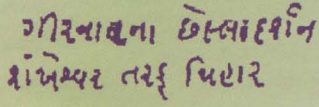 ગીરનારના છેલ્લા દર્શન
શંખેશ્વર તરફ વિહાર